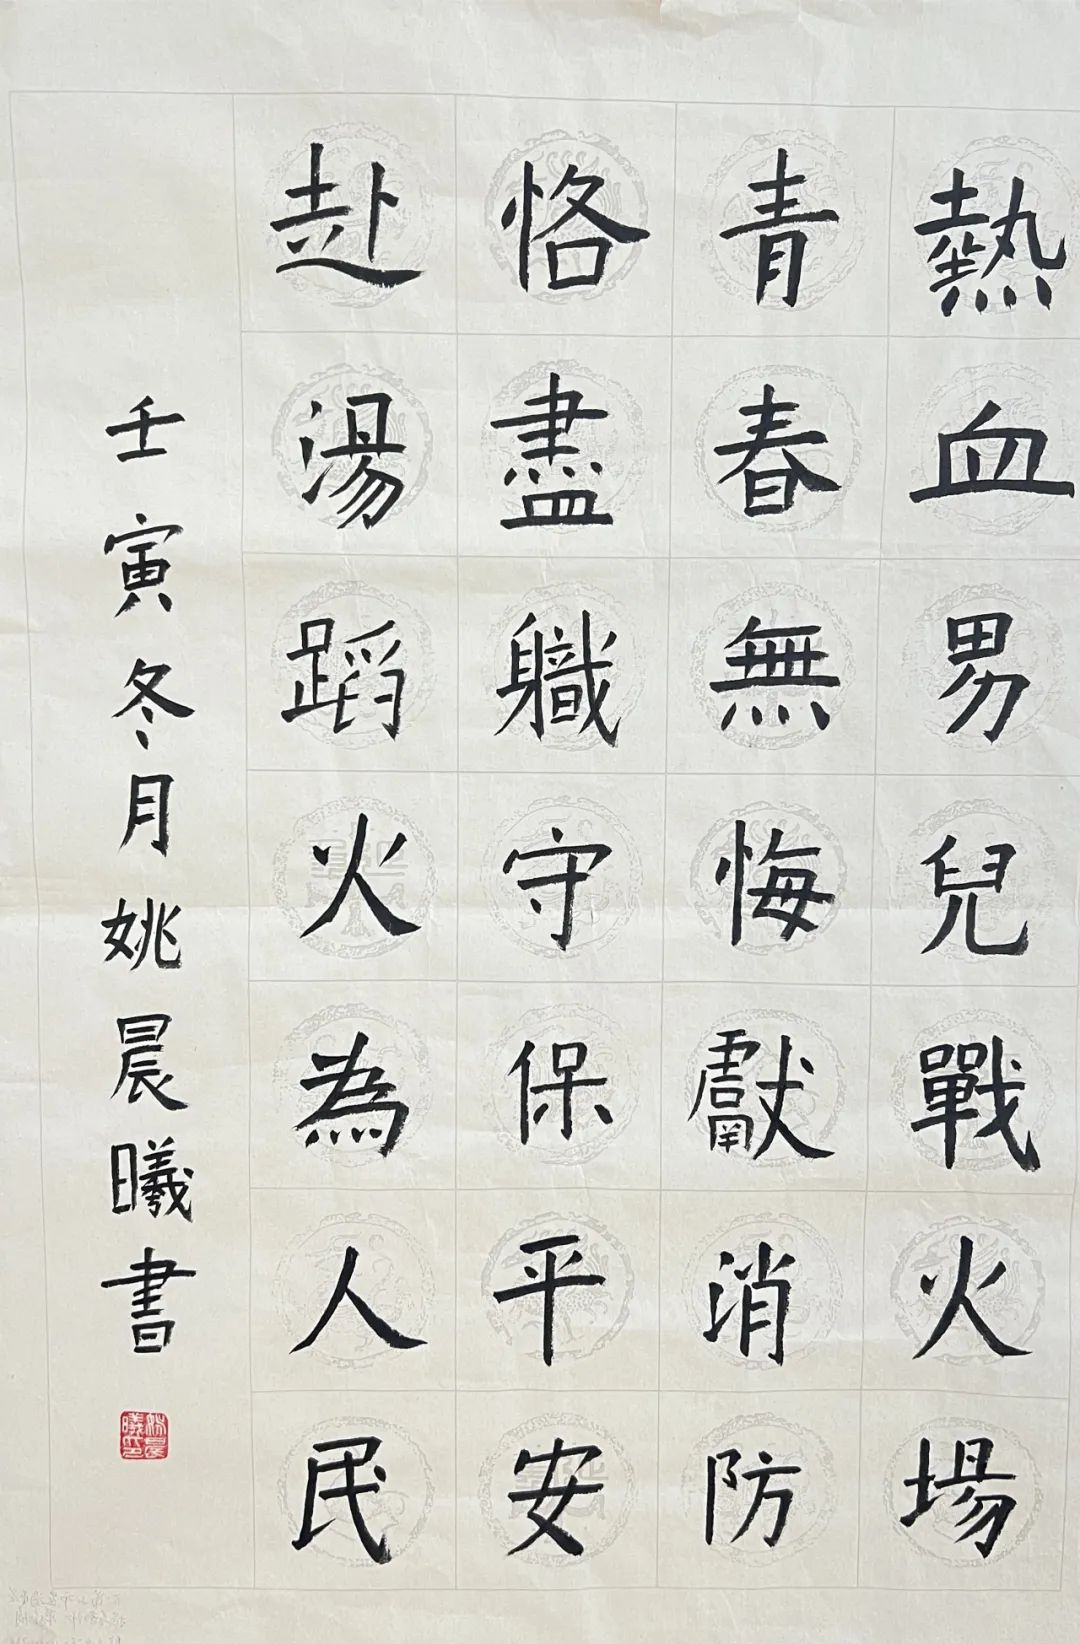 熱血男兒戰火場
青春無悔獻消防
恪盡職守保平安
赴湯蹈火為人民
壬寅冬月姚晨曦書